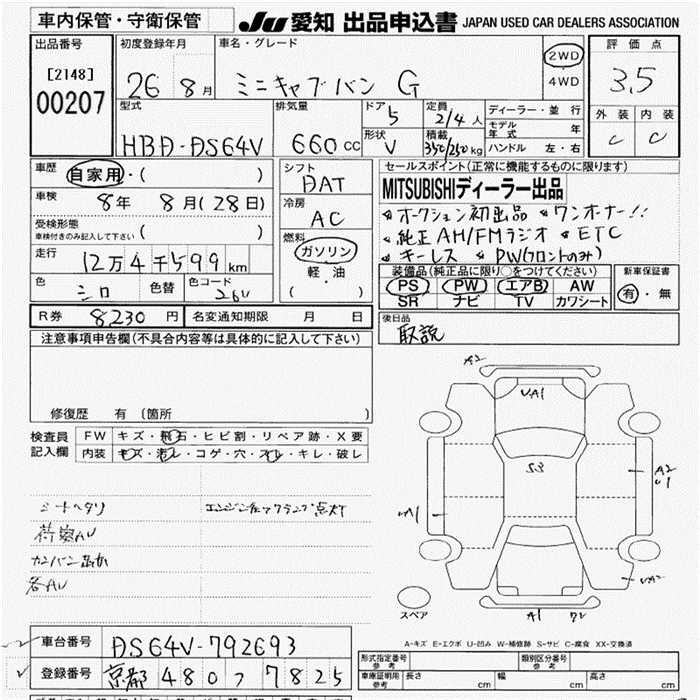 車内保管・守衛保管
JU 愛知 出品申込書 JAPAN USED CAR DEALERS ASSOCIATION
出品番号 初度登録年月 車名・グレード 評価点
[2148] 00207
26年 8月 ミニキャブバン G
2WD
4WD
3.5
型式 排気量 ドア 5 定員 2/4人 ディーラー・並行
モデル年式 年
外装 内装
HBD-DS64V 660cc 形状 V 積載 350/250kg ハンドル 左・右
C C
車歴 自家用・( )
シフト DAT
セールスポイント(正常に機能するものに限ります)
MITSUBISHIディーラー出品
車検 8年 8月(28日)
冷房 AC
オークション初出品 ワンオーナー!!
純正AM/FMラジオ ETC
キーレス PW(フロントのみ)
受検形態
車検付きのみ記入して下さい ( )
燃料 ガソリン
軽油
( ・ )
走行 12万4千599km
装備品(純正品に限り○をつけてください)
新車保証書
色 シロ 色替 色コード 26U
PS PW エアB AW
SR ナビ TV カワシート
有・無
R券 8230円 名変通知期限 月 日
後日品
取説
注意事項申告欄(不具合内容等は具体的に記入して下さい)
修復歴 有 (箇所 )
検査員記入欄
FW キズ・飛石・ヒビ割・リペア跡・X要
内装 キズ・汚レ・コゲ・穴・スレ・キレ・破レ
シートヘタリ エンジンチェックランプ点灯
荷室AU
カンバン跡有
各AU
A2
UA1
S3
A2
U1
UA1
UA2
A1
スペア
A-キズ E-エクボ U-凹み W-補修跡 S-サビ C-腐食 XX-交換済
車台番号 DS64V-792693
登録番号 京都 480 ﾌ 7825
形式指定番号 参考 類別区分番号 参考
車庫証明用 参考 長さ cm 幅 cm 高さ cm